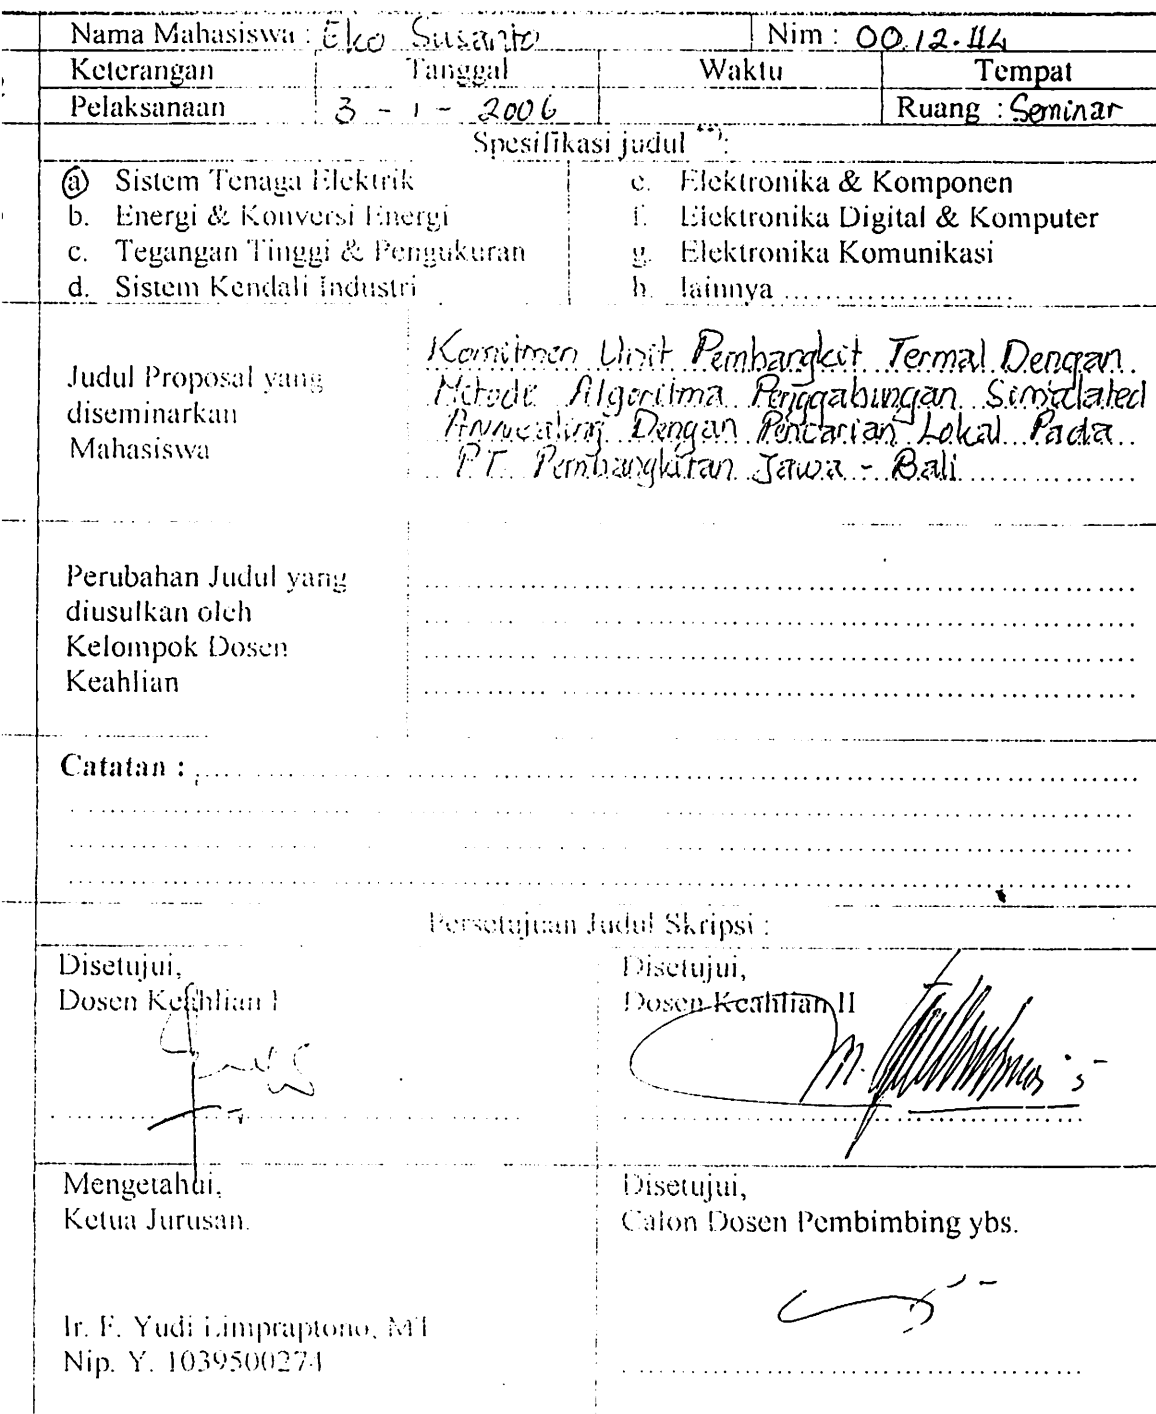 Nama Mahasiswa : Eko Susanto Nim : 00.12.114
Keterangan Tanggal Waktu Tempat
Pelaksanaan 3 - 1 - 2006 Ruang : Seminar
Spesifikasi judul **):
a. Sistem Tenaga Elektrik
b. Energi & Konversi Energi
c. Tegangan Tinggi & Pengukuran
d. Sistem Kendali Industri
e. Elektronika & Komponen
f. Elektronika Digital & Komputer
g. Elektronika Komunikasi
h. lainnya ........................
Judul Proposal yang
diseminarkan
Mahasiswa
Komitmen Unit Pembangkit Termal Dengan
Metode Algoritma Penggabungan Simulated
Annealing Dengan Pencarian Lokal Pada
PT. Pembangkitan Jawa - Bali
Perubahan Judul yang
diusulkan oleh
Kelompok Dosen
Keahlian
Catatan :
Persetujuan Judul Skripsi :
Disetujui,
Dosen Keahlian I
Disetujui,
Dosen Keahlian II
Mengetahui,
Ketua Jurusan.
Ir. F. Yudi Limpraptono, MT
Nip. Y. 1039500274
Disetujui,
Calon Dosen Pembimbing ybs.